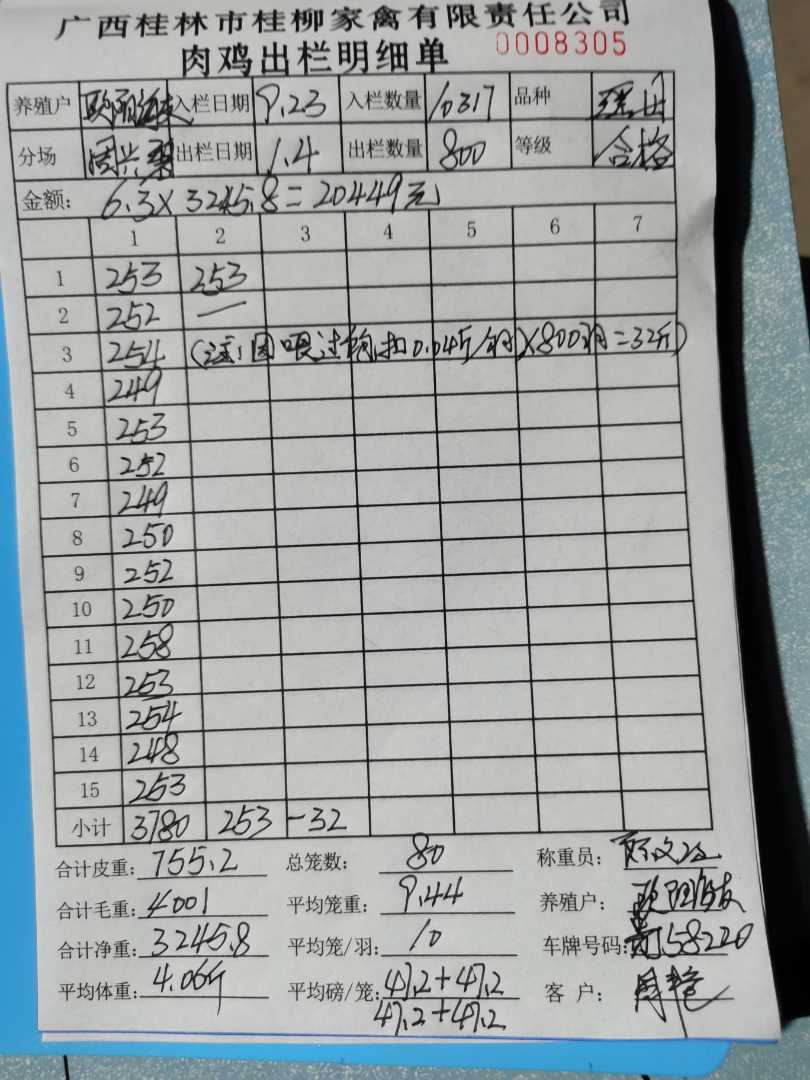 广西桂林市桂柳家禽有限责任公司
肉鸡出栏明细单 0008305
养殖户 入栏日期 9.23 入栏数量 10317 品种
分场 周兴 出栏日期 1.4 出栏数量 800 等级 合格
金额: 6.3×3245.8=20449元
1 2 3 4 5 6 7
1 253 253
2 252 —
3 254 (注:因喂过扣0.04斤/羽×800羽=32斤)
4 249
5 253
6 252
7 249
8 250
9 252
10 250
11 258
12 253
13 254
14 248
15 253
小计 3780 253 -32
合计皮重: 755.2 总笼数: 80 称重员:
合计毛重: 4001 平均笼重: 9.44 养殖户:
合计净重: 3245.8 平均笼/羽: 10 车牌号码: 58220
平均体重: 4.06斤 平均磅/笼: 47.2+47.2 客户:
47.2+47.2